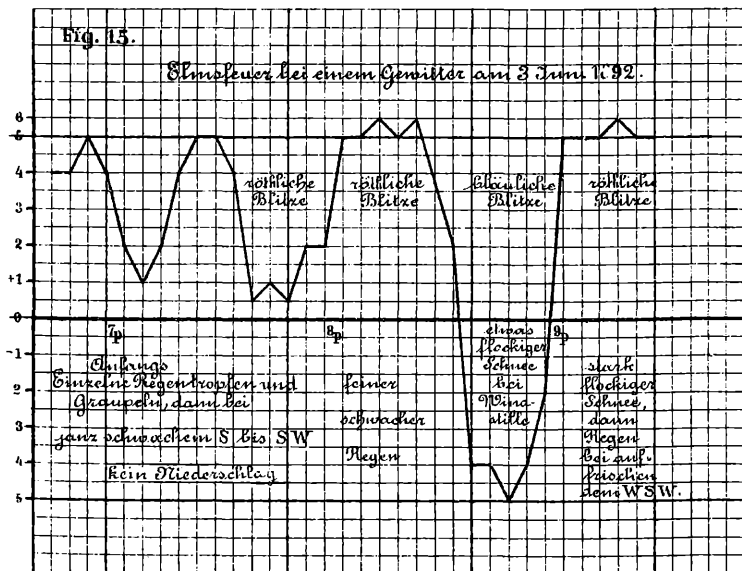 Fig. 15.
Elmsfeuer bei einem Gewitter am 3 Juni 1892.
6
5
4
3
2
+1
0
-1
2
3
4
5
7p
8p
9p
röthliche
Blitze
röthliche
Blitze
bläuliche
Blitze
röthliche
Blitze
Anfangs
Einzelne Regentropfen und
Graupeln, dann bei
ganz schwachem S bis SW
kein Niederschlag
feiner
schwacher
Regen
etwas
flockiger
Schnee
bei
Wind-
stille
stark
flockiger
Schnee,
dann
Regen
bei auf-
frischen
dem WSW.